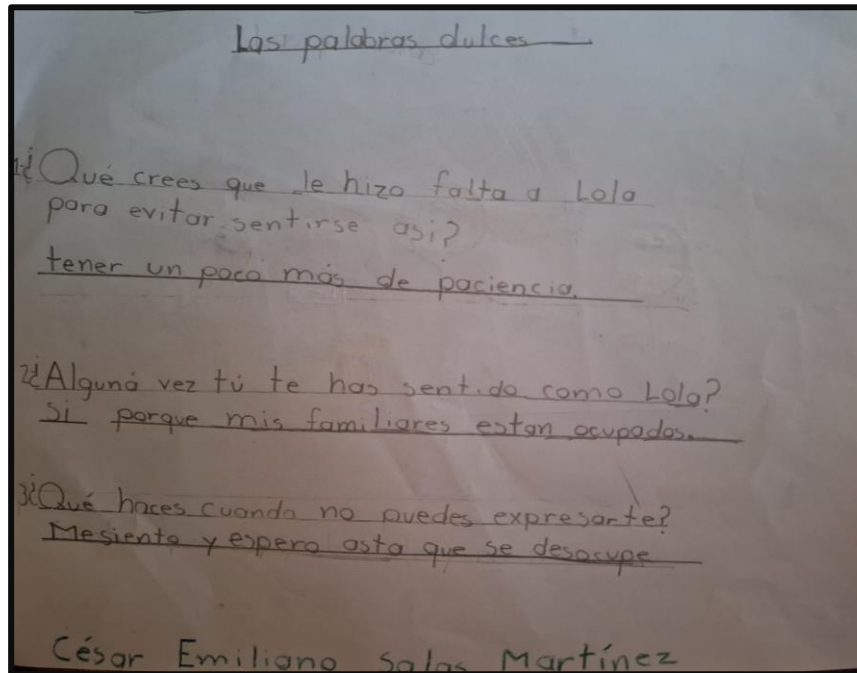 Las palabras dulces
1-¿Qué crees que le hizo falta a Lola
para evitar sentirse asi?
tener un poco más de paciencia.
2¿Alguna vez tú te has sentido como Lola?
Si porque mis familiares estan ocupados.
3¿Qué haces cuando no puedes expresarte?
Mesiento y espero asta que se desocupe
César Emiliano Salas Martínez